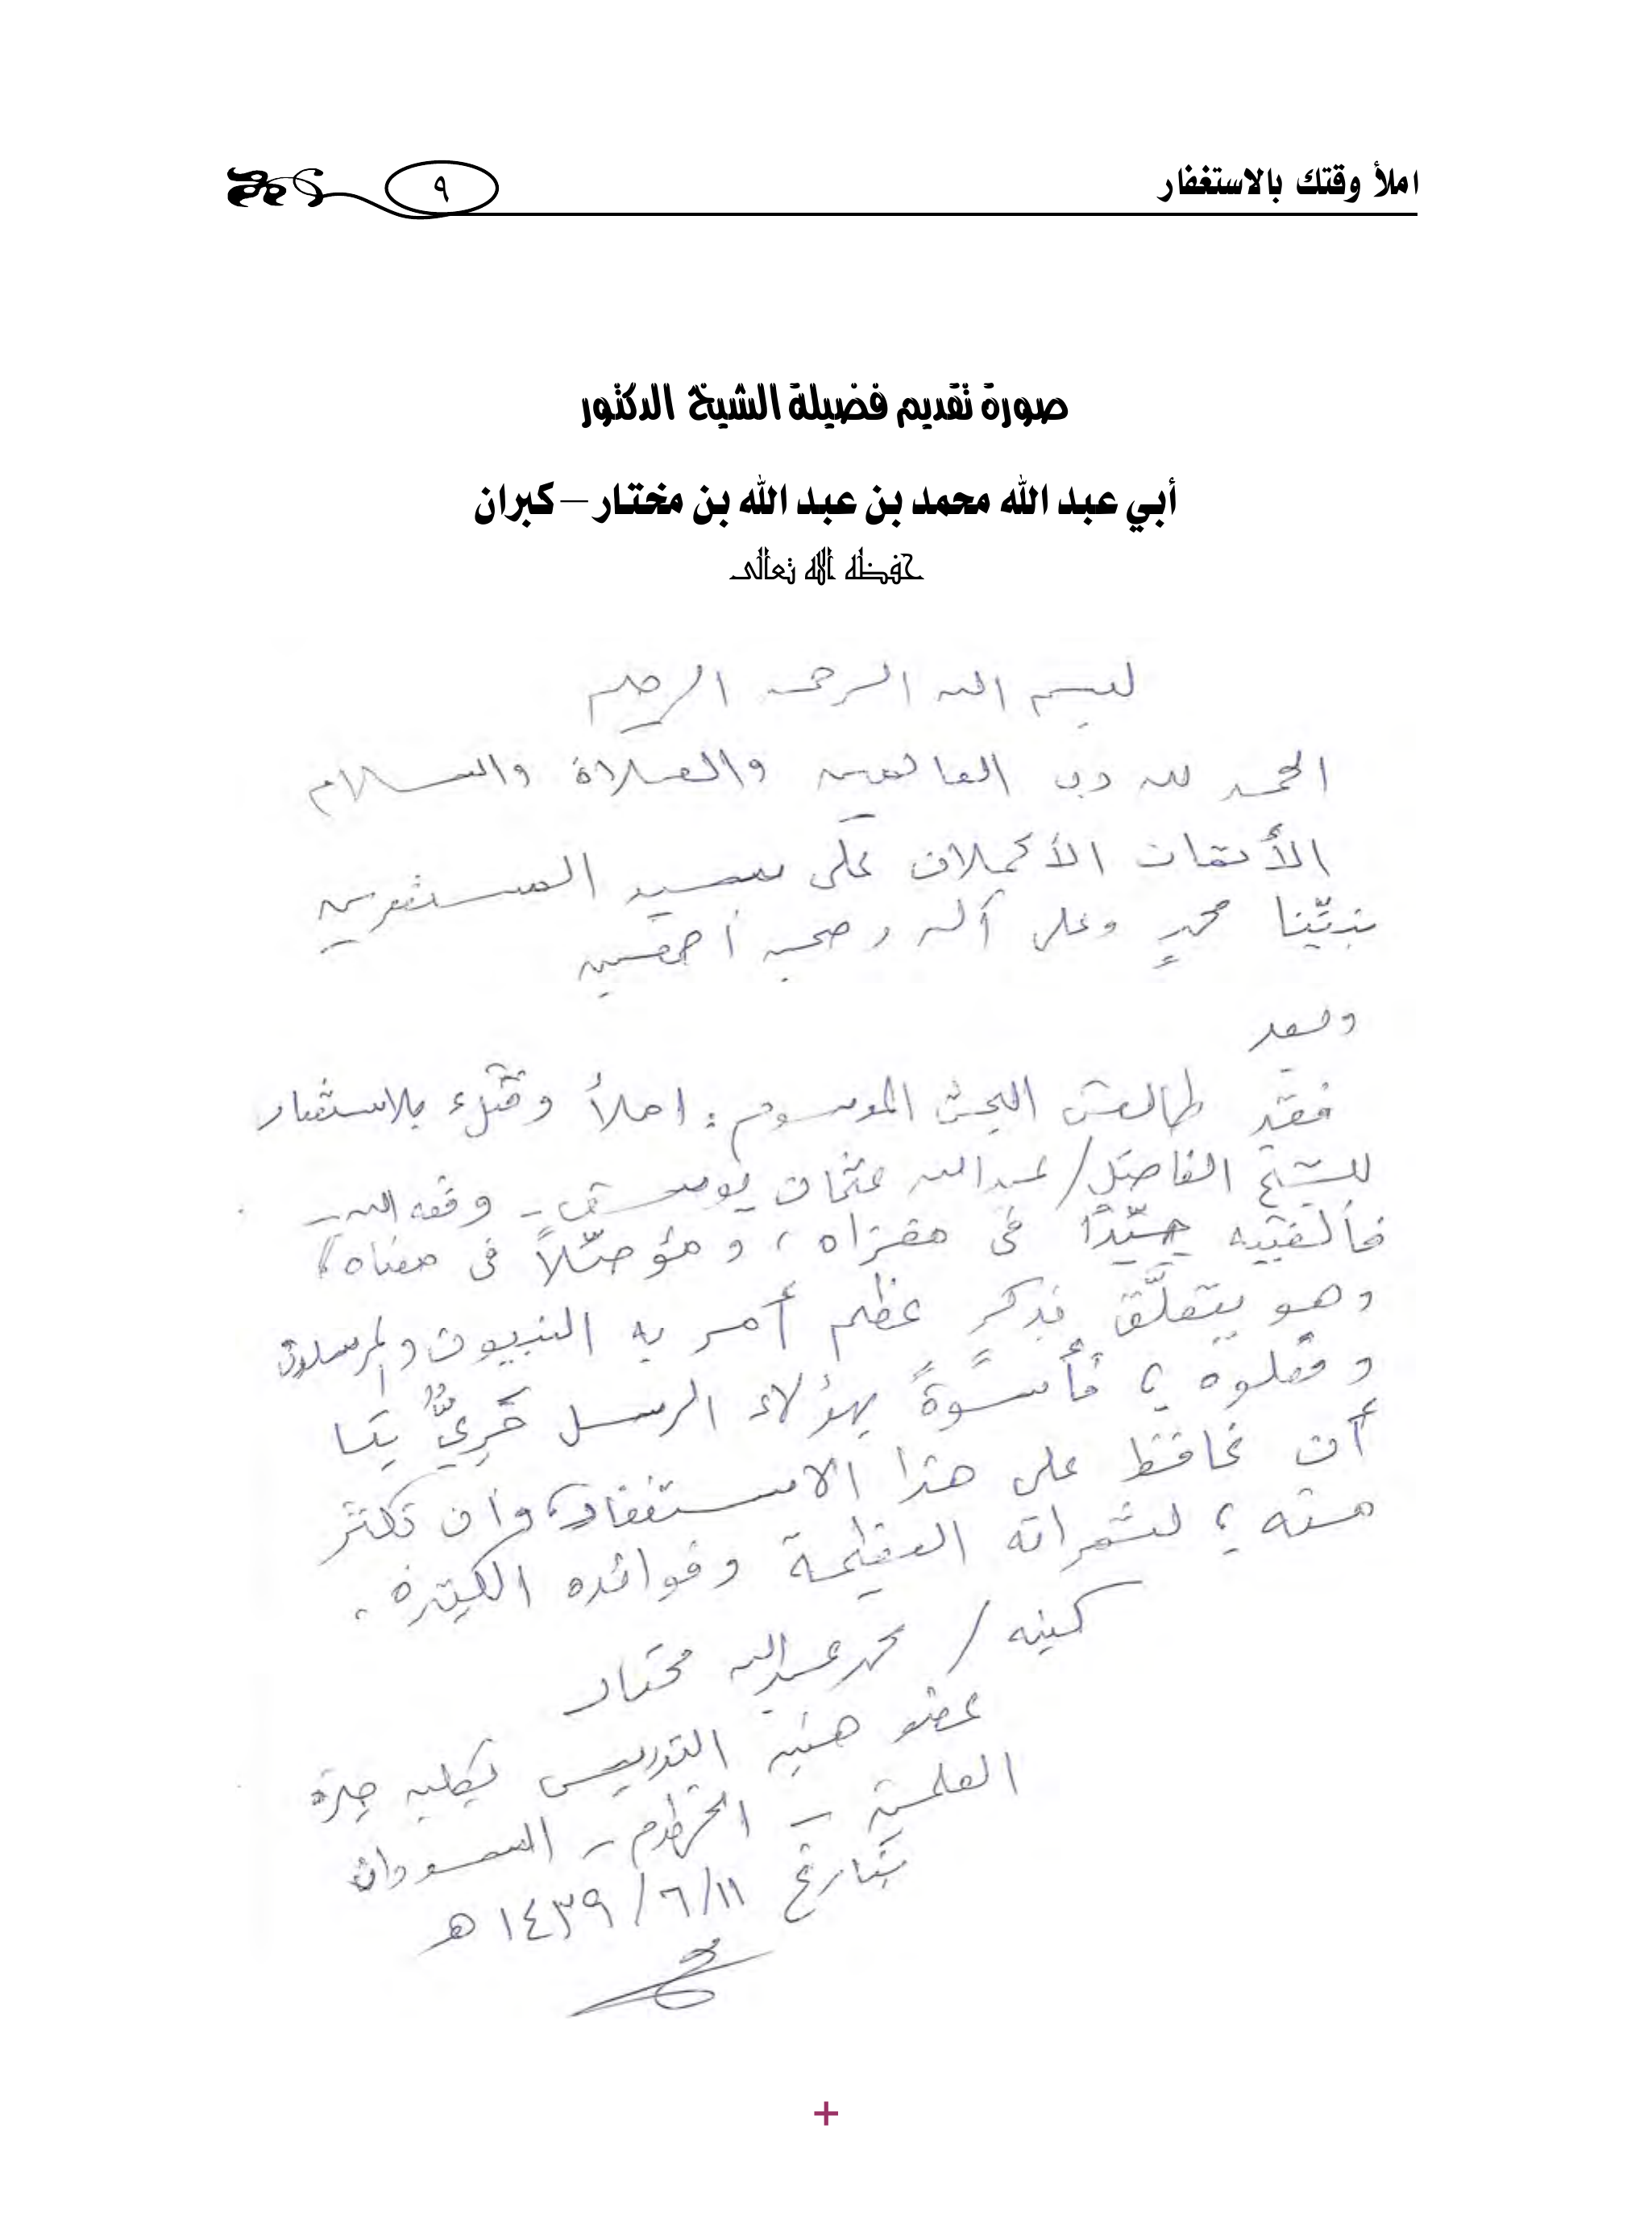 املأ وقتك بالاستغفار
٩
صورة تقديم فضيلة الشيخ الدكتور
أبي عبد الله محمد بن عبد الله بن مختار – كبران
حفظه الله تعالى
بسم الله الرحمن الرحيم
الحمد لله رب العالمين والصلاة والسلام
الأتمان الأكملان على سيد المستغفرين
نبيّنا محمدٍ وعلى آله وصحبه أجمعين
وبعد
فقد طالعت البحث الموسوم: املأ وقتك بالاستغفار
للشيخ الفاضل/ عبدالله عثمان يوسف – وفقه الله –
فألفيته جيّدًا في مغزاه، ومؤصّلاً في معناه،
وهو يتعلّق بذكرٍ عظيم أمر به النبيون والمرسلون
وفعلوه؛ فأسوةً بهؤلاء الرسل حَرِيٌّ بنا
أن نحافظ على هذا الاستغفار، وأن نكثر
منه؛ لثمراته العظيمة وفوائده الكثيرة.
كتبه / محمد عبدالله مختار
عضو هيئة التدريس بكلية جبرة
العلمية – الخرطوم – السودان
بتاريخ ١١/ ٦/ ١٤٣٩ هـ